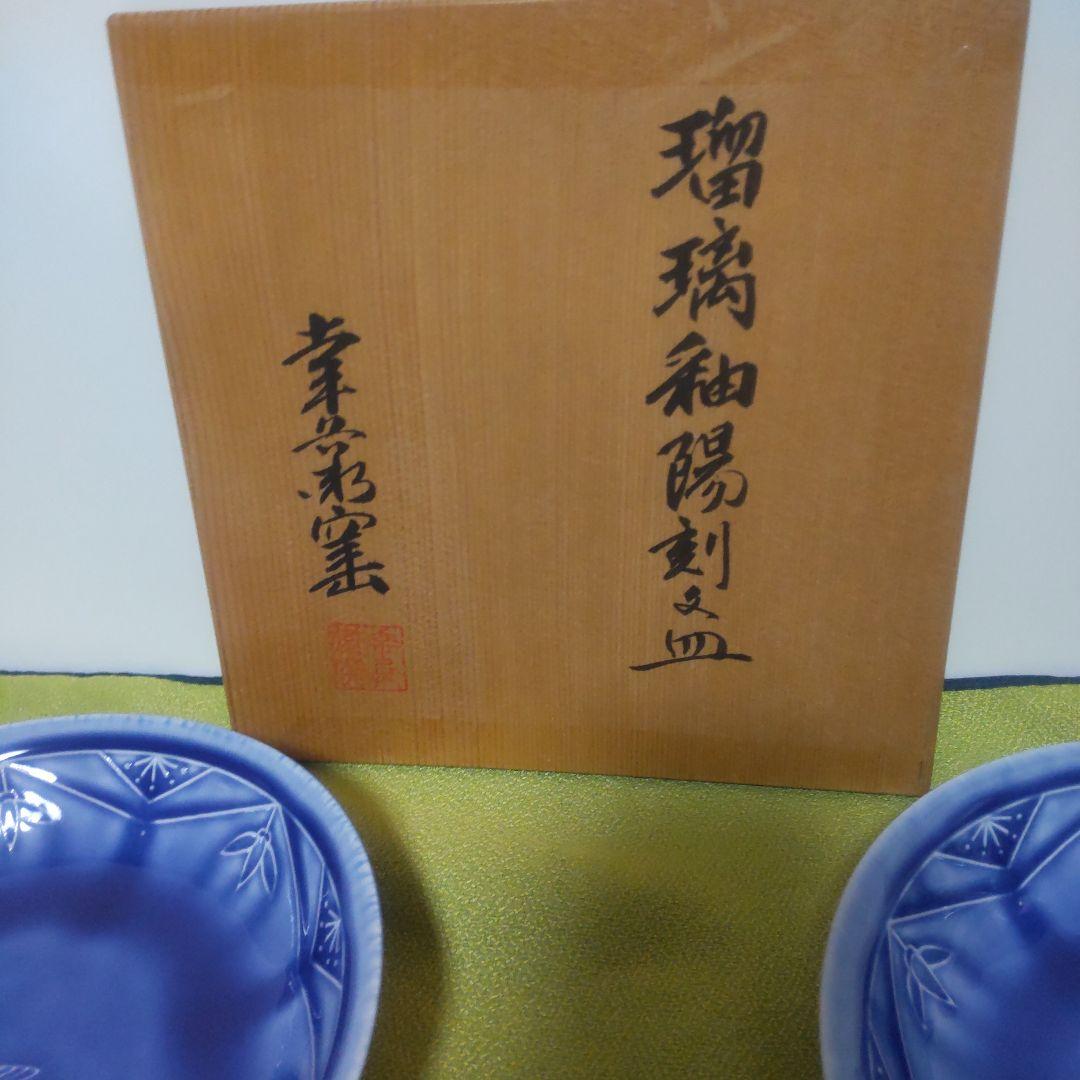 瑠璃釉陽刻文皿
幸兵衛窯